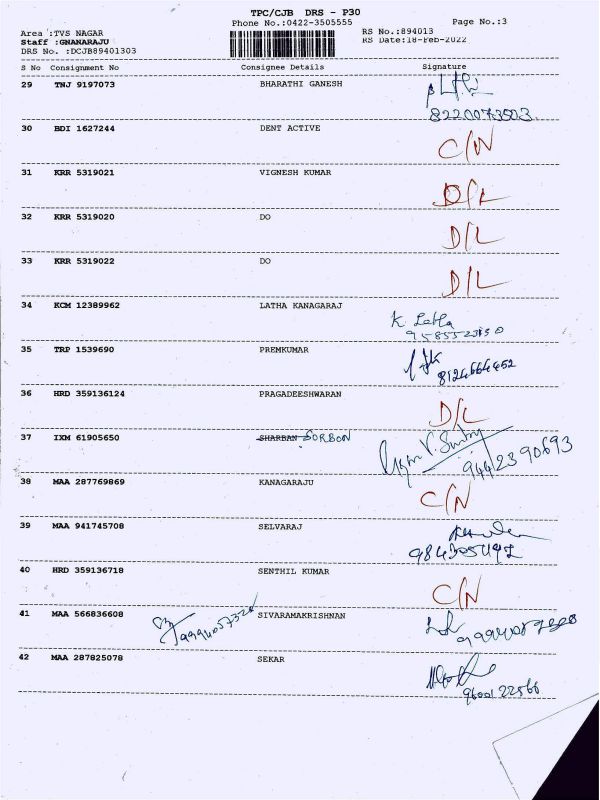 TPC/CJB DRS - P30
Phone No.:0422-3505555
Page No.:3
Area :TVS NAGAR
RS No.:894013
Staff :GNANARAJU
RS Date:18-Feb-2022
DRS No. :DCJB89401303
S No Consignment No Consignee Details Signature
29 TNJ 9197073 BHARATHI GANESH
8220073503
30 BDI 1627244 DENT ACTIVE C/N
31 KRR 5319021 VIGNESH KUMAR D/L
32 KRR 5319020 DO D/L
33 KRR 5319022 DO D/L
34 KCM 12389962 LATHA KANAGARAJ
K. Latha
35 TRP 1539690 PREMKUMAR
8124664452
36 HRD 359136124 PRAGADEESHWARAN D/L
37 IXM 61905650 SHARBAN SORBON
9442390693
38 MAA 287769869 KANAGARAJU C/N
39 MAA 941745708 SELVARAJ
40 HRD 359136718 SENTHIL KUMAR C/N
41 MAA 566836608 SIVARAMAKRISHNAN
42 MAA 287825078 SEKAR
9600122566